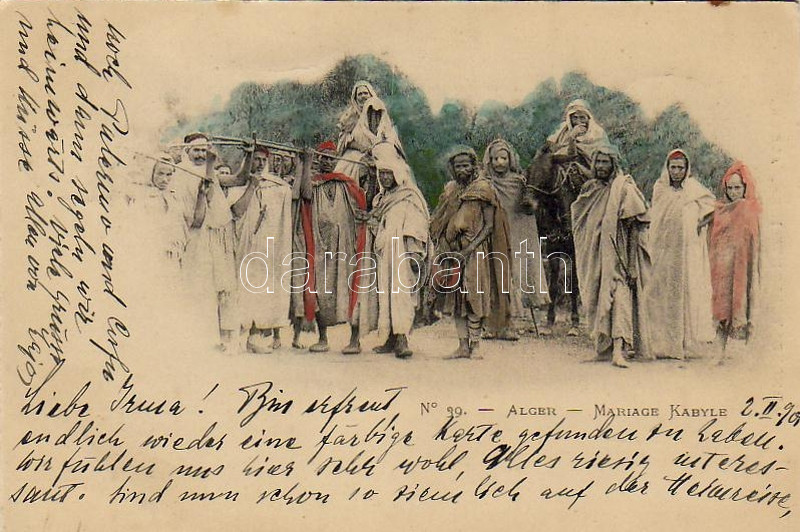 Nº 39. — ALGER — MARIAGE KABYLE
2. II.
Liebe Irma! Bin erfreut,
endlich wieder eine färbige Karte gefunden zu haben.
Wir fühlen uns hier sehr wohl, Alles riesig interes-
sant. Sind nun schon so ziemlich auf der Heimreise,
noch Palermo und Corfu
und dann segeln wir
heimwärts. Viele Grüsse
und Küsse Allen von
darabanth